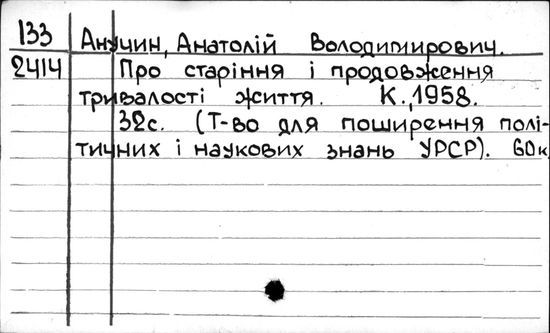 133 Анучин, Анатолій Володимирович.
2414 Про старіння і продовження
тривалості життя. К., 1958.
32с. (Т-во для поширення полі-
тичних і наукових знань УРСР). 60к